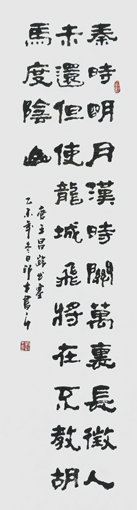 秦時明月漢時關萬裏長徵人
未還但使龍城飛將在不教胡
馬度陰山
唐王昌齡出塞
乙未年冬日